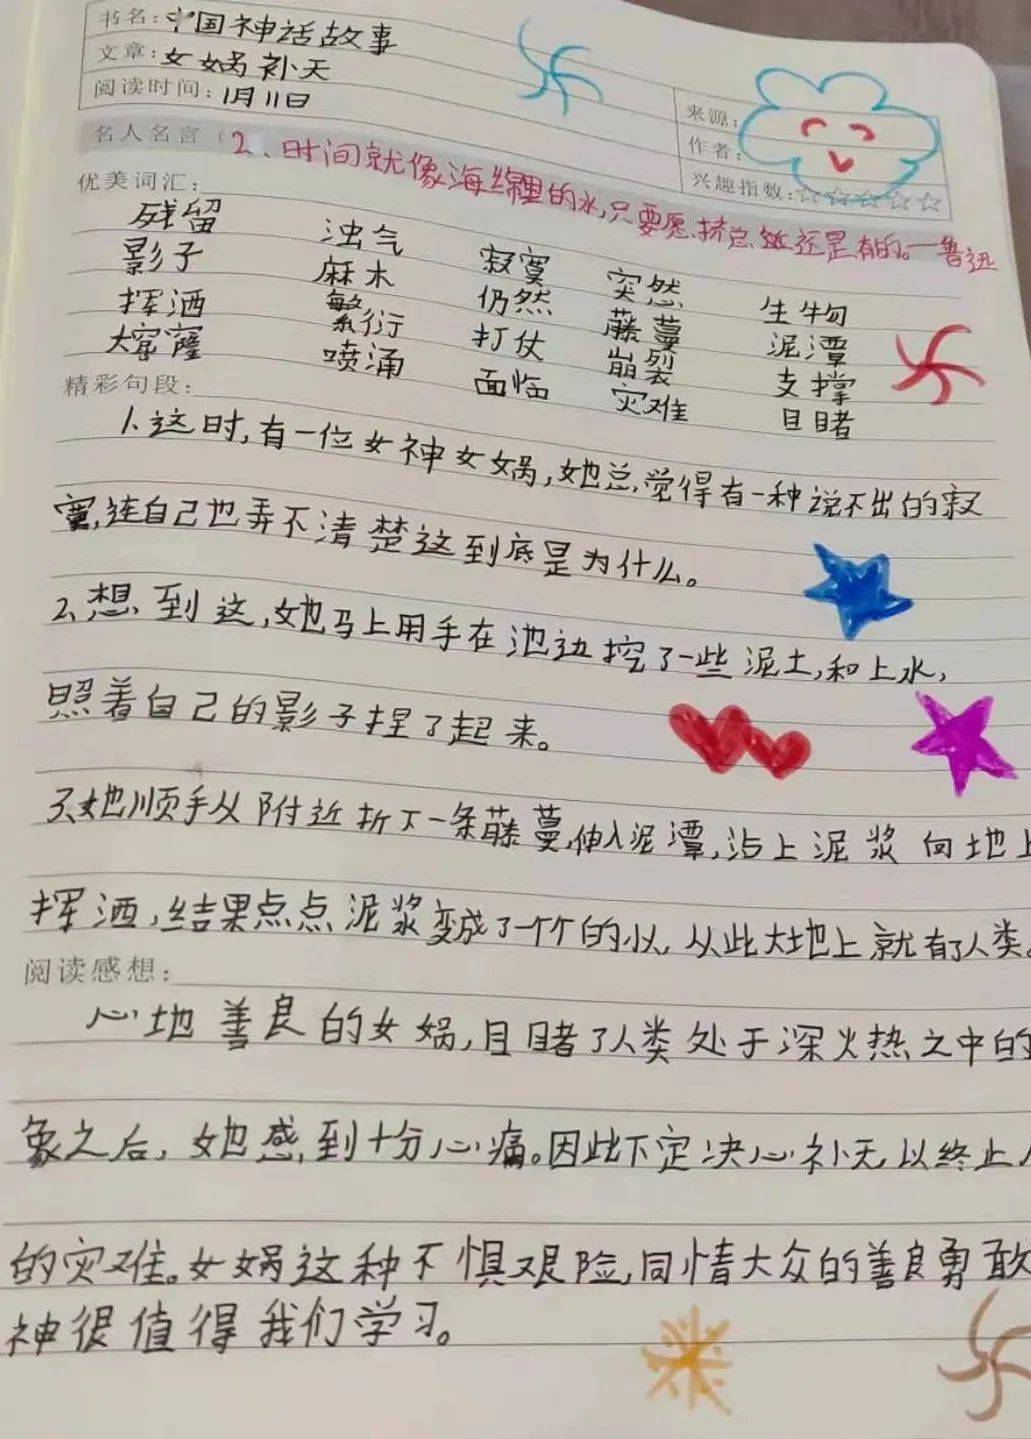 书名:中国神话故事
文章:女娲补天
阅读时间:1月11日
来源:
作者:
兴趣指数:☆☆☆☆☆
名人名言(2、时间就像海绵里的水,只要愿挤总是还是有的。一鲁迅
优美词汇:
残留 浊气 寂寞 突然 生物
影子 麻木 仍然 藤蔓 泥潭
挥洒 繁衍 打仗 崩裂 支撑
大窟窿 喷涌 面临 灾难 目睹
精彩句段:
1.这时,有一位女神女娲,她总觉得有一种说不出的寂
寞,连自己也弄不清楚这到底是为什么。
2、想到这,她马上用手在池边挖了一些泥土,和上水,
照着自己的影子捏了起来。
3、她顺手从附近折下一条藤蔓,伸入泥潭,沾上泥浆向地上
挥洒,结果点点泥浆变成了一个个的小人,从此大地上就有了人类。
阅读感想:
心地善良的女娲,目睹了人类处于深火热之中的
象之后,她感到十分心痛。因此下定决心补天,以终止人
的灾难。女娲这种不惧艰险,同情大众的善良勇敢
神很值得我们学习。